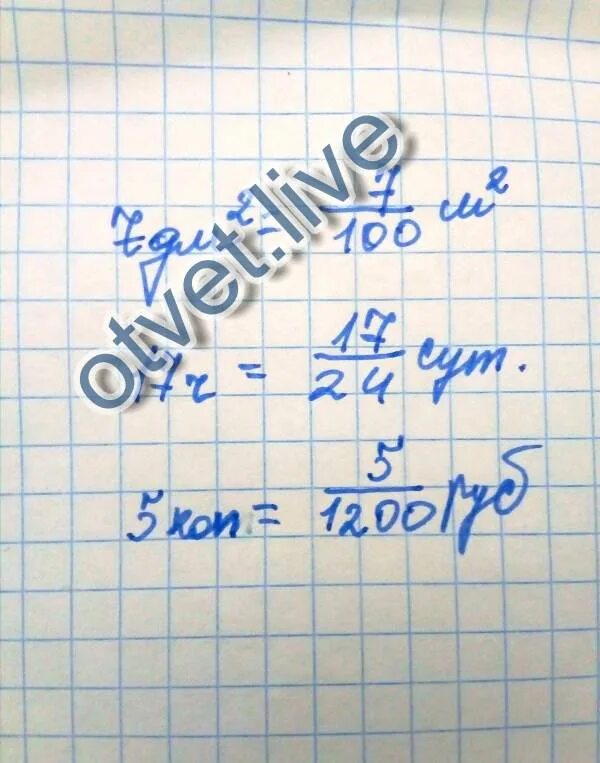 7 дм² = 7/100 м²
17 ч = 17/24 сут.
5 коп = 5/1200 руб
otvet.live